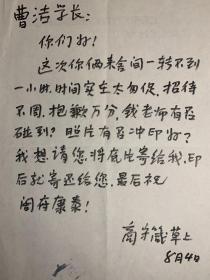 曹洁学长：
你们好！
这次你俩来舍间一转不到
一小时，时间实在太匆促，招待
不周，抱歉万分，钱老师有否
碰到？照片有否冲印好？
我想请您，将底片寄给我，印
后就寄还给您，最后祝
阖府康泰！
草上
8月4日